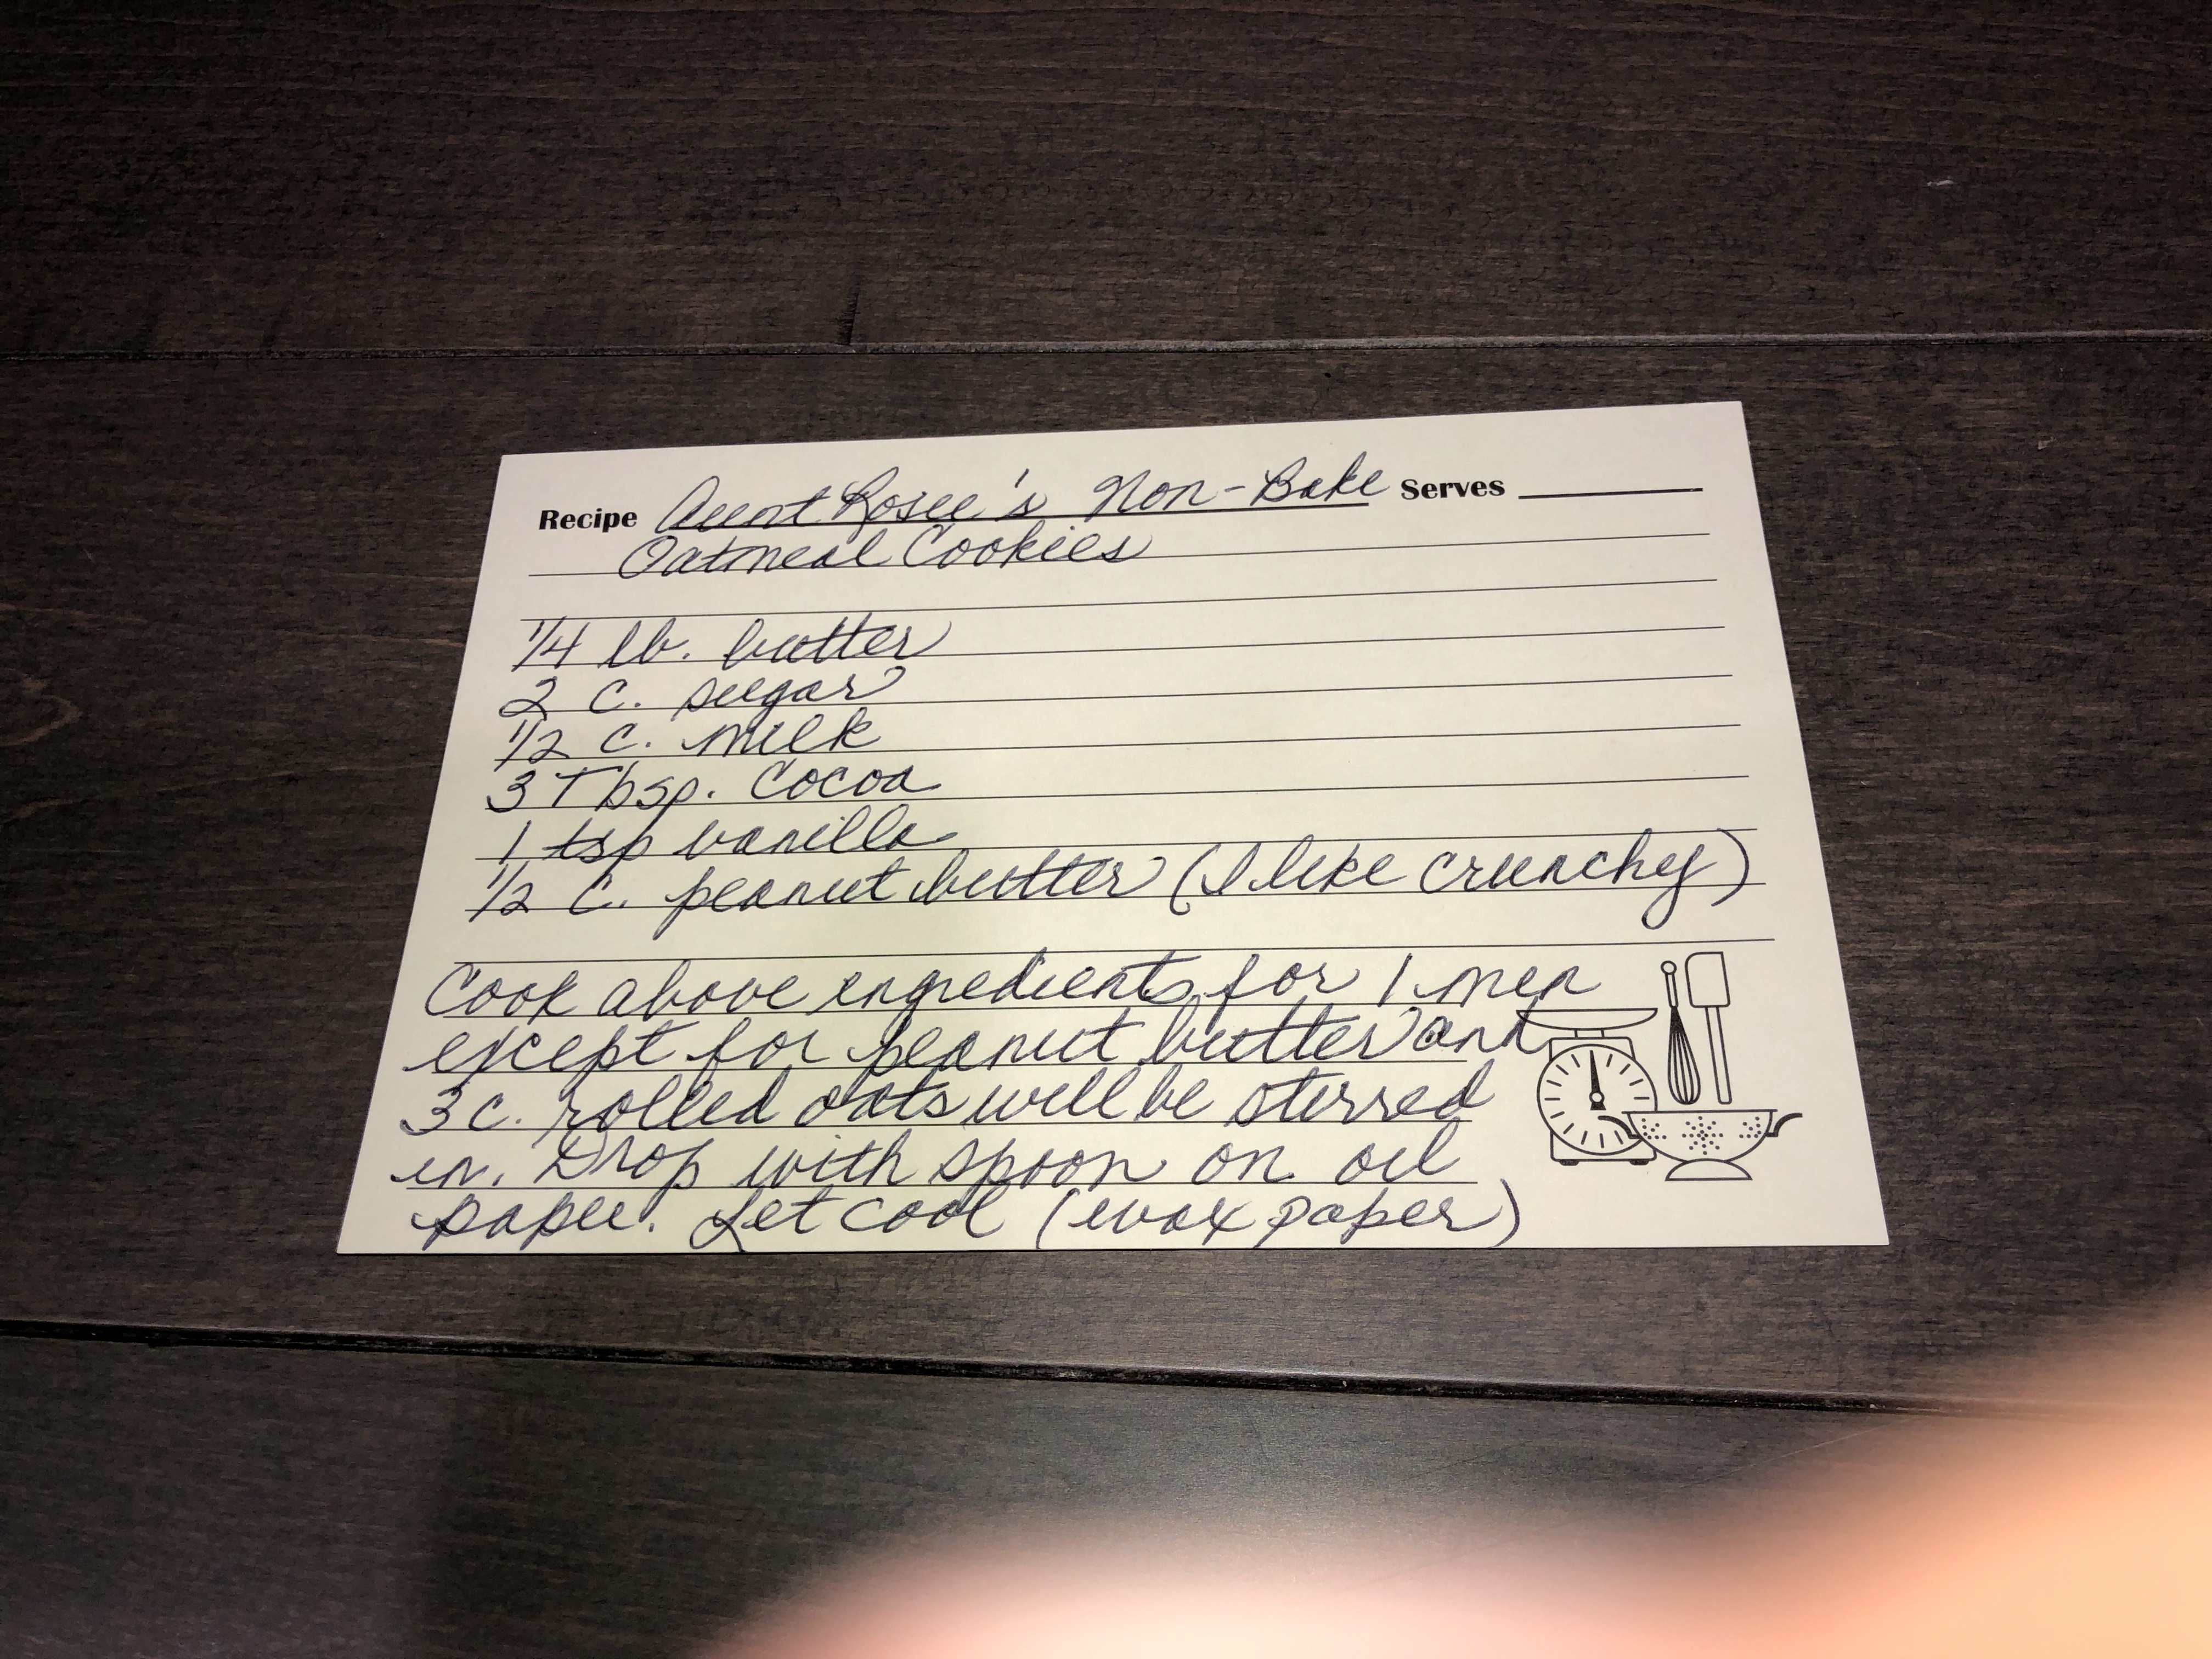 Recipe Aunt Rosie's Non-Bake Serves
Oatmeal Cookies
1/4 lb. butter
2 c. sugar
1/2 c. milk
3 Tbsp. Cocoa
1 tsp vanilla
1/2 c. peanut butter (I like crunchy)
Cook above ingredients for 1 min
except for peanut butter and
3 c. rolled oats will be stirred
in. Drop with spoon on oil
paper. Let cool (wax paper)